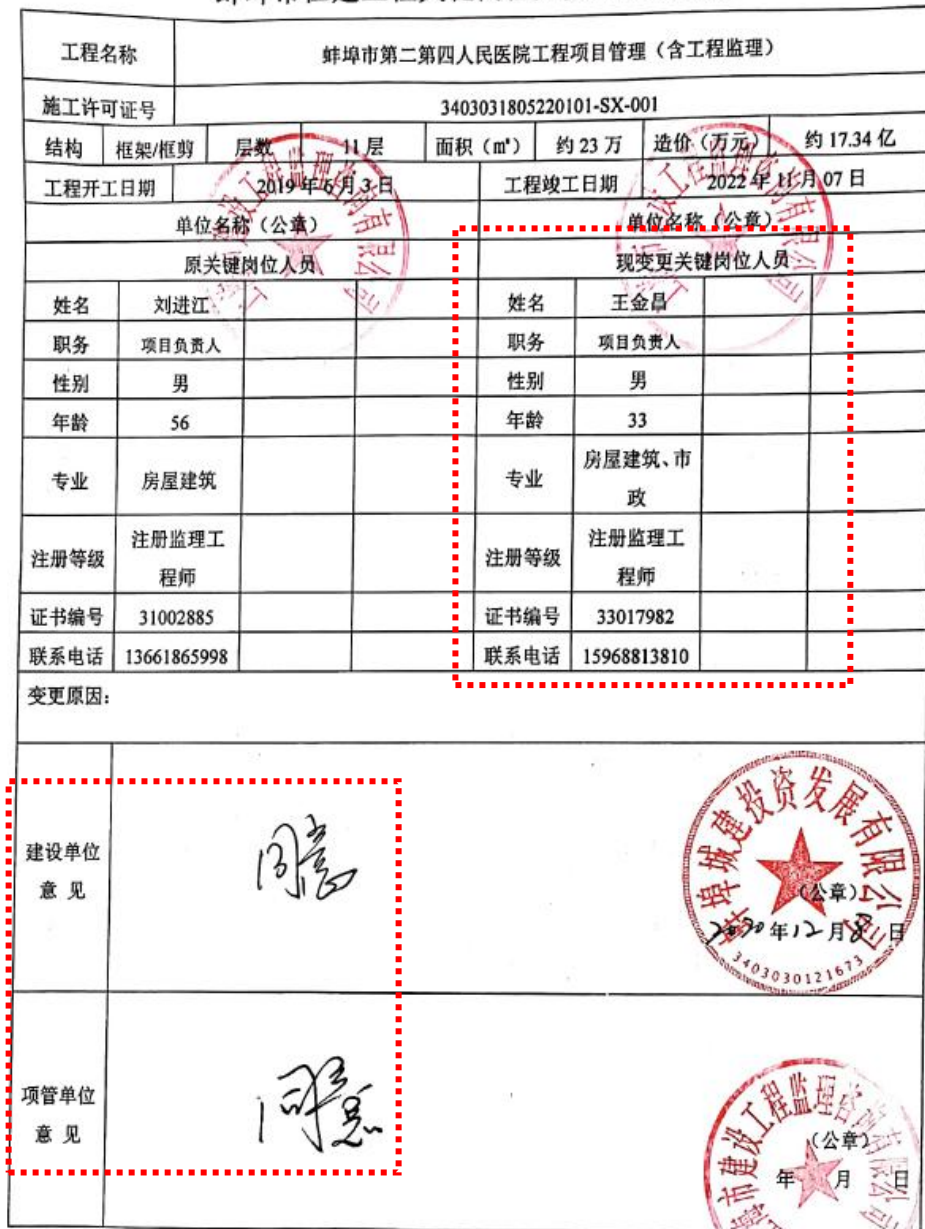 工程名称 蚌埠市第二第四人民医院工程项目管理（含工程监理）
施工许可证号 3403031805220101-SX-001
结构 框架/框剪 层数 11层 面积（㎡） 约23万 造价（万元） 约17.34亿
工程开工日期 2019年6月3日 工程竣工日期 2022年11月07日
单位名称（公章） 单位名称（公章）
原关键岗位人员 现变更关键岗位人员
姓名 刘进江 姓名 王金昌
职务 项目负责人 职务 项目负责人
性别 男 性别 男
年龄 56 年龄 33
专业 房屋建筑 专业 房屋建筑、市
政
注册等级 注册监理工 注册等级 注册监理工
程师 程师
证书编号 31002885 证书编号 33017982
联系电话 13661865998 联系电话 15968813810
变更原因：
建设单位
意 见
同意
蚌埠城建投资发展有限公司
（公章）
2020年12月8日
3403030121673
项管单位
意 见
同意
市建设工程监理咨询有限公司
（公章）
年 月 日